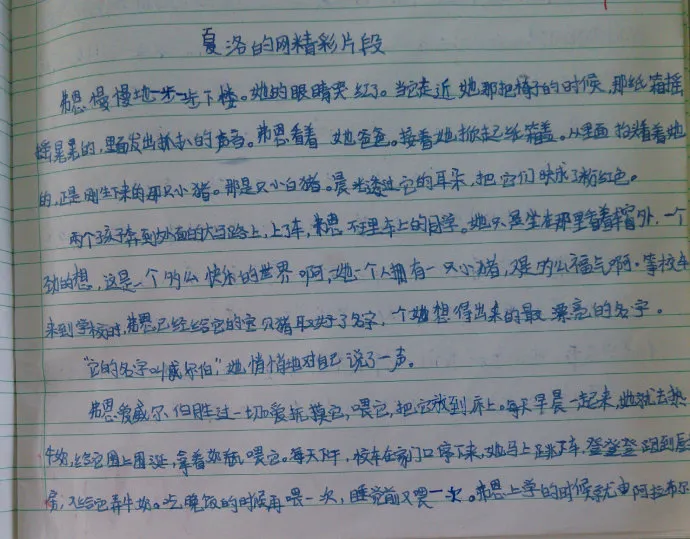 夏洛的网精彩片段
弗恩慢慢地一步一步下楼。她的眼睛哭红了。当它走近她那把椅子的时候,那纸箱摇
摇晃晃的,里面发出抓扒的声音。弗恩看看她爸爸。接着她掀起纸箱盖。从里面抬头看着她
的,正是刚生下来的那只小猪。那是只小白猪。晨光透过它的耳朵,把它们映成了粉红色。
两个孩子奔到外面的大马路上,上了车,弗恩不理车上的同学。她只是坐在那里看着窗外,一个
劲的想,这是一个多么快乐的世界啊,她一个人拥有一只小猪,是多么福气啊。等校车
来到学校时,弗恩已经给它的宝贝猪取好了名字,一个她想得出来的最漂亮的名字。
"它的名字叫威尔伯",她悄悄地对自己说了一声。
弗恩爱威尔伯胜过一切。爱抚摸它,喂它,把它放到床上。每天早晨一起来,她就去热
牛奶,给它围上围涎,拿着奶瓶喂它。每天下午,校车在家门口停下来,她马上跳下车,登登登跑到厨
房,给它弄牛奶。吃晚饭的时候再喂一次,睡觉前又喂一次。弗恩上学的时候就由阿拉布尔